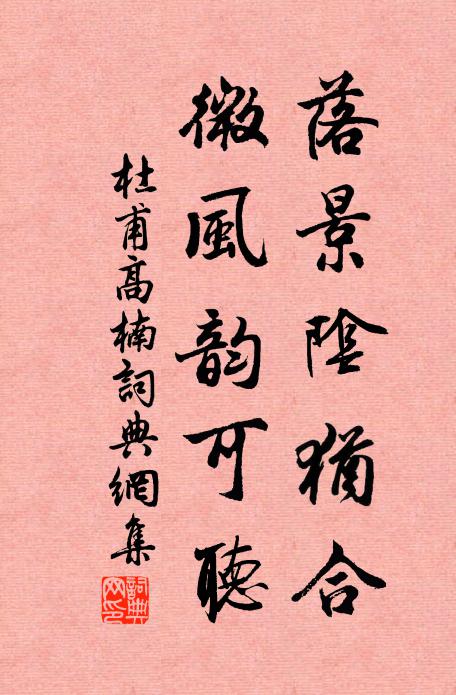 落景陰猶合
微風韵可聽
杜甫高楠詞典網集
詞典網印